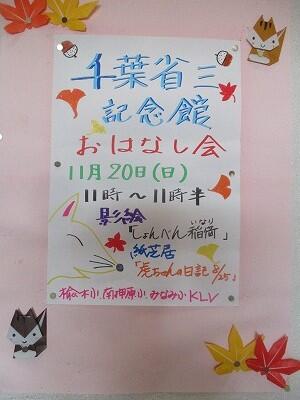 千葉省三
記念館
おはなし会
11月20日(日)
11時〜11時半
影絵
「しょんべん稲荷」
いなり
紙芝居
「虎ちゃんの日記 8/25」
楡木小、南押原小、みなみ小KLV